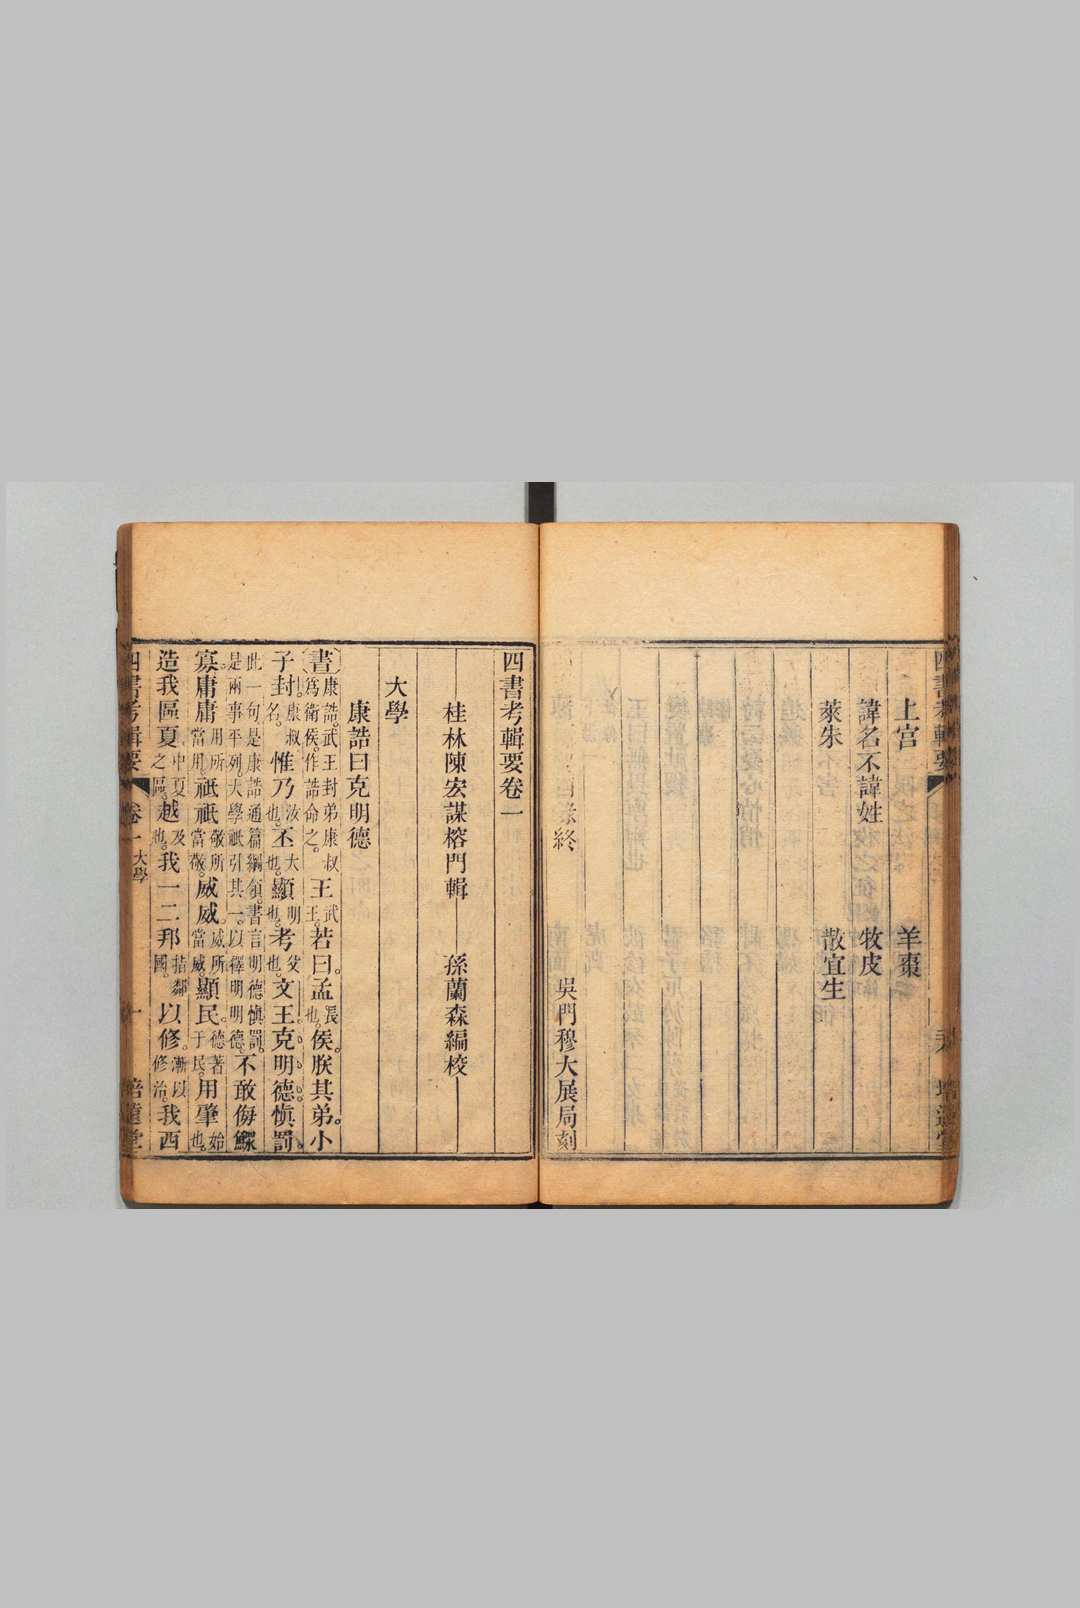 上宮　羊棗
諱名不諱姓　牧皮
萊朱　散宜生
目錄終
吳門穆大展局刻
四書考輯要卷一
桂林陳宏謀榕門輯　孫蘭森編校
大學
康誥曰克明德
書康誥。武王封弟康叔爲衛侯。作誥命之。王武王。若曰。孟長也。侯。朕其弟。小
子封。康叔名。惟乃汝也。丕大也。顯明也。考父也。文王克明德。愼罰。
此一句。是康誥通篇綱領。書言明德愼罰。是兩事平列。大學祇引其一。以釋明明德。不敢侮鰥
寡。庸庸用所當用。祇祇敬所當敬。威威。威所當威。顯民。德著于民。用肇始也。
造我區夏中夏之區。越及也。我一二邦指鄰國。以修。漸以修治。我西
四書考輯要　卷一　大學　一　培遠堂